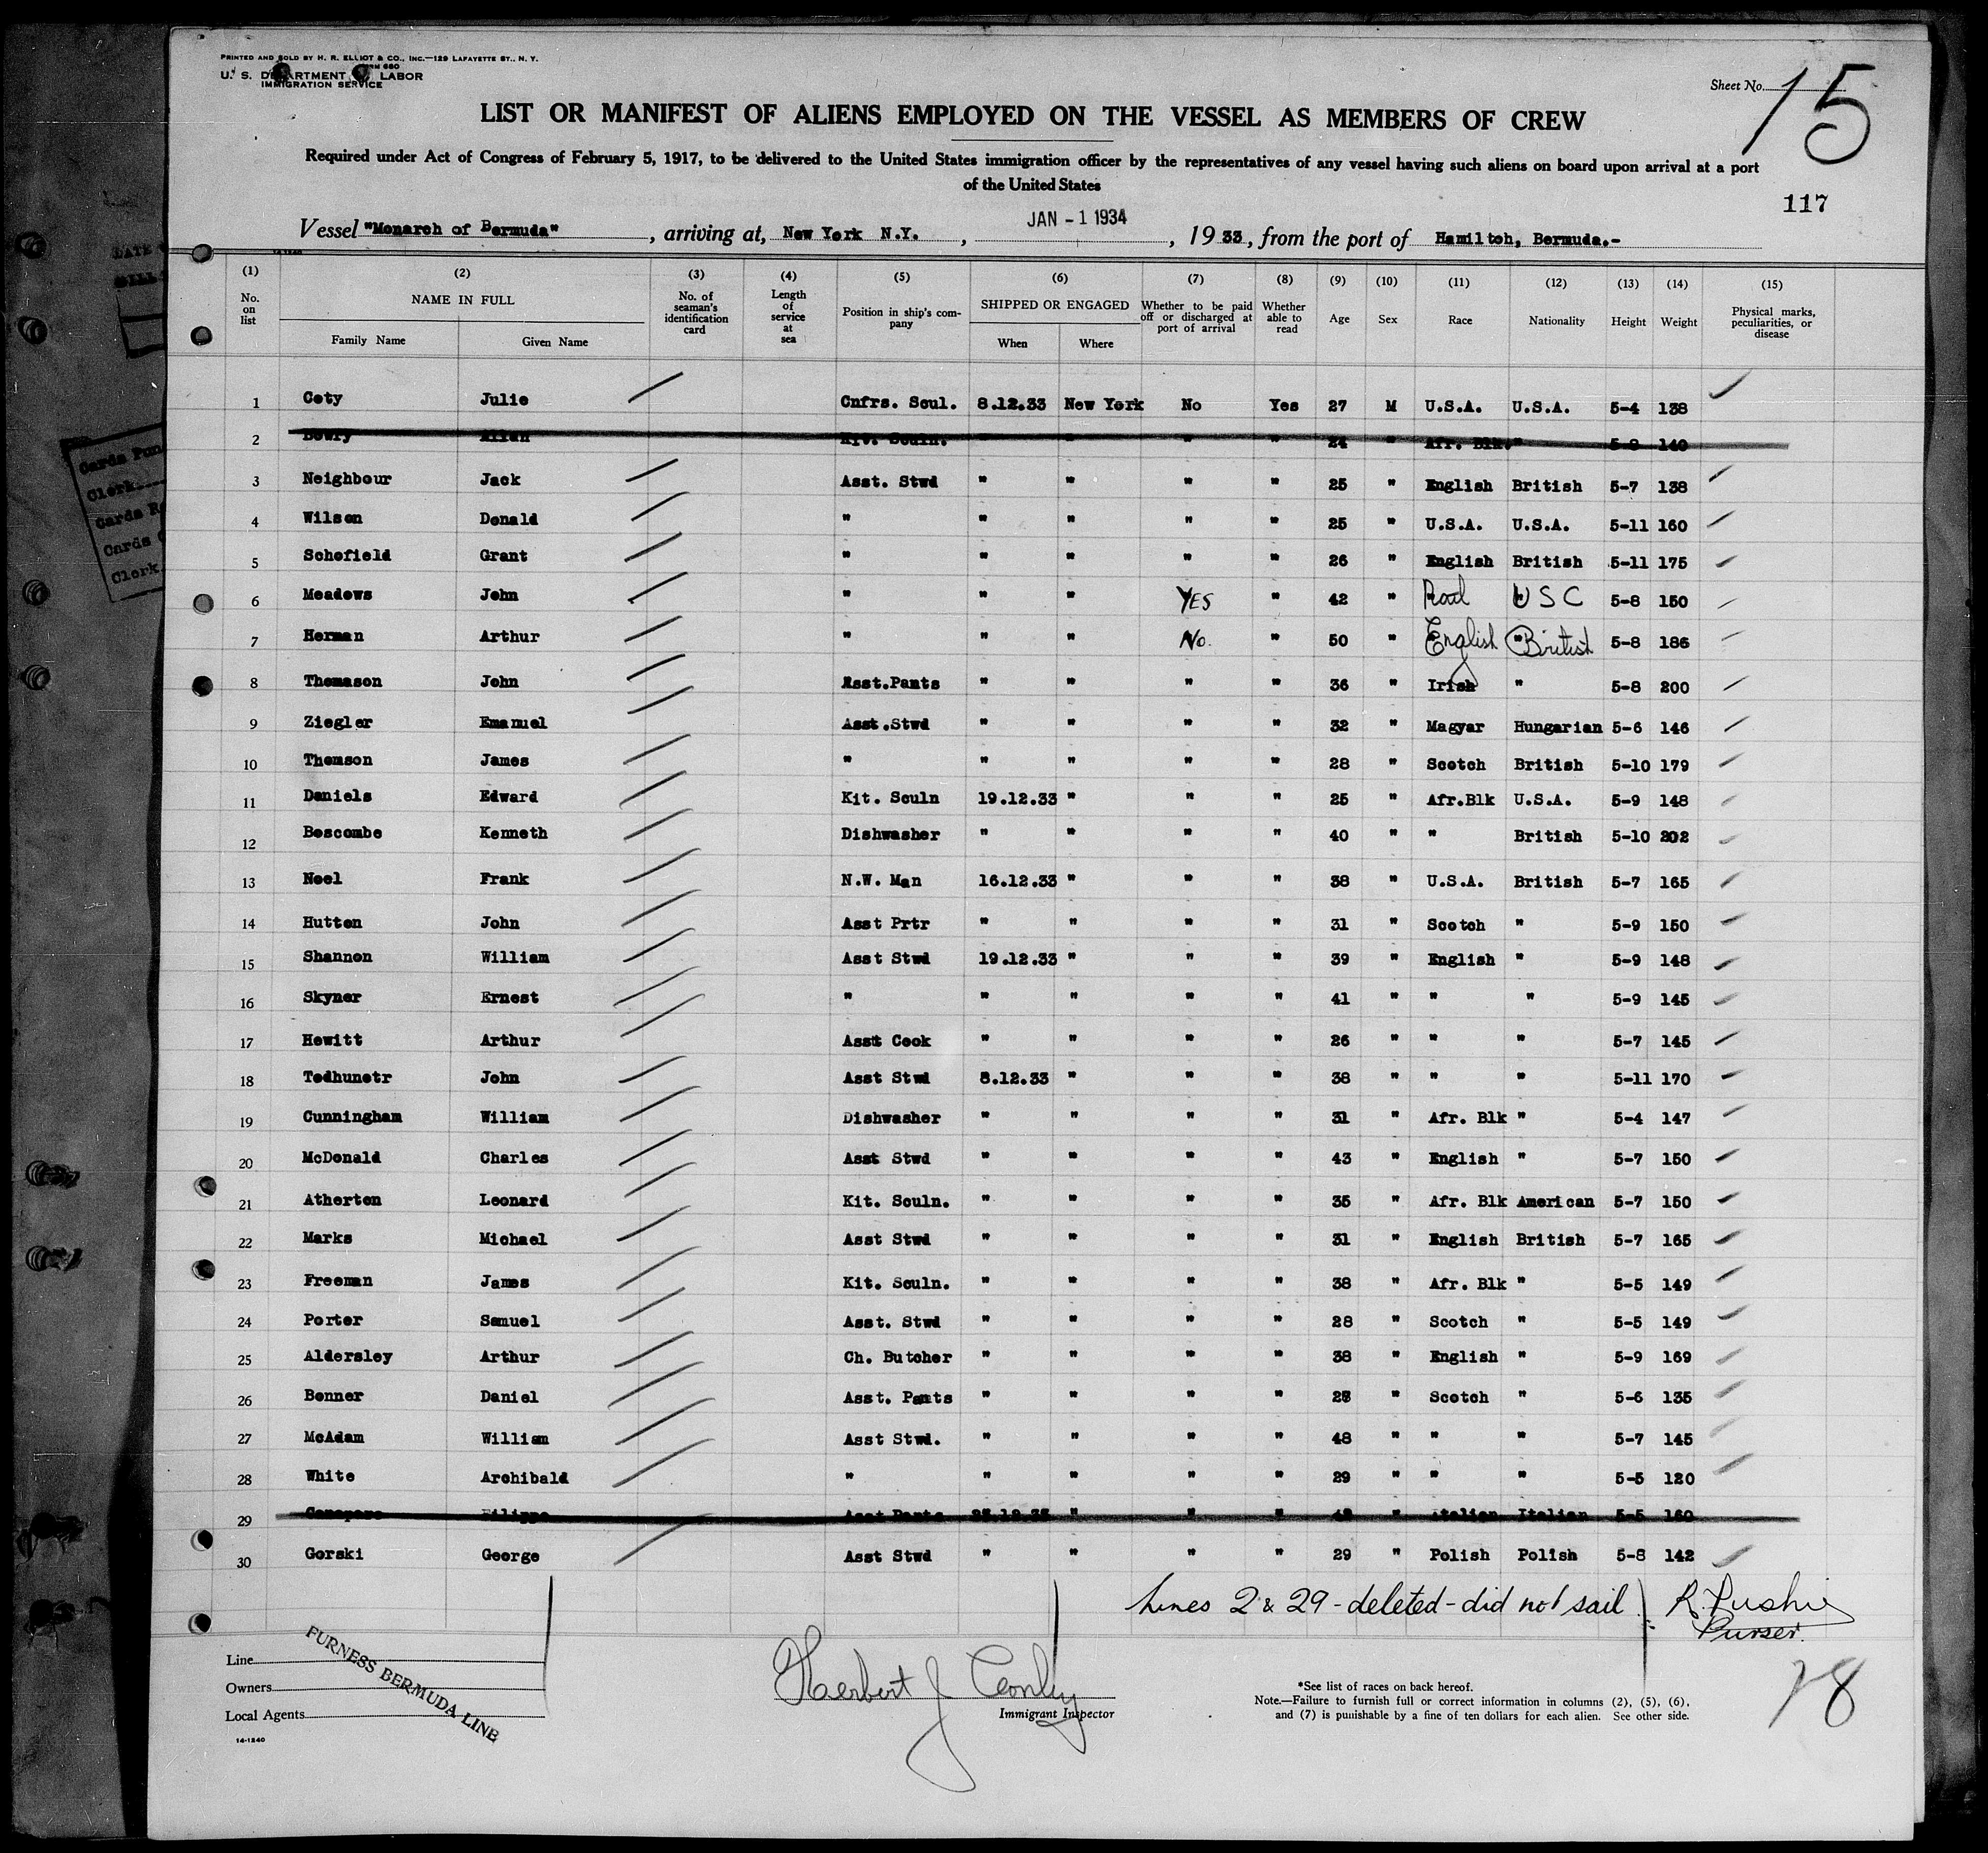 PRINTED AND SOLD BY H. R. ELLIOT & CO., INC.—129 LAFAYETTE ST., N. Y.
FORM 680
U. S. DEPARTMENT OF LABOR
IMMIGRATION SERVICE
Sheet No. 15
LIST OR MANIFEST OF ALIENS EMPLOYED ON THE VESSEL AS MEMBERS OF CREW
Required under Act of Congress of February 5, 1917, to be delivered to the United States immigration officer by the representatives of any vessel having such aliens on board upon arrival at a port
of the United States
117
JAN - 1 1934
Vessel "Monarch of Bermuda", arriving at, New York N.Y., , 1933, from the port of Hamilton, Bermuda.-
(1) (2) (3) (4) (5) (6) (7) (8) (9) (10) (11) (12) (13) (14) (15)
No. on list NAME IN FULL Family Name Given Name No. of seaman's identification card Length of service at sea Position in ship's company SHIPPED OR ENGAGED When Where Whether to be paid off or discharged at port of arrival Whether able to read Age Sex Race Nationality Height Weight Physical marks, peculiarities, or disease
1 Coty Julio Cnfrs. Scul. 8.12.33 New York No Yes 27 M U.S.A. U.S.A. 5-4 138
2 Dowry Allan Kit. Sculn. " " " " 24 " Afr. Blk. " 5-8 140
3 Neighbour Jack Asst. Stwd " " " " 25 " English British 5-7 138
4 Wilson Donald " " " " " 25 " U.S.A. U.S.A. 5-11 160
5 Schofield Grant " " " " " 26 " English British 5-11 175
6 Meadows John " " " YES " 42 " U S C 5-8 150
7 Herman Arthur " " " No. " 50 " English British 5-8 186
8 Thomason John Asst.Pants " " " " 36 " Irish " 5-8 200
9 Ziegler Emanuel Asst.Stwd " " " " 32 " Magyar Hungarian 5-6 146
10 Thomson James " " " " " 28 " Scotch British 5-10 179
11 Daniels Edward Kit. Sculn 19.12.33 " " " 25 " Afr.Blk U.S.A. 5-9 148
12 Boscombe Kenneth Dishwasher " " " " 40 " " British 5-10 202
13 Noel Frank N.W. Man 16.12.33 " " " 38 " U.S.A. British 5-7 165
14 Hutton John Asst Prtr " " " " 31 " Scotch " 5-9 150
15 Shannon William Asst Stwd 19.12.33 " " " 39 " English " 5-9 148
16 Skyner Ernest " " " " " 41 " " " 5-9 145
17 Hewitt Arthur Asst Cook " " " " 26 " " " 5-7 145
18 Todhunetr John Asst Stwd 8.12.33 " " " 38 " " " 5-11 170
19 Cunningham William Dishwasher " " " " 31 " Afr. Blk " 5-4 147
20 McDonald Charles Asst Stwd " " " " 43 " English " 5-7 150
21 Atherton Leonard Kit. Sculn. " " " " 35 " Afr. Blk American 5-7 150
22 Marks Michael Asst Stwd " " " " 31 " English British 5-7 165
23 Freeman James Kit. Sculn. " " " " 38 " Afr. Blk " 5-5 149
24 Porter Samuel Asst. Stwd " " " " 28 " Scotch " 5-5 149
25 Aldersley Arthur Ch. Butcher " " " " 38 " English " 5-9 169
26 Bonner Daniel Asst. Pants " " " " 28 " Scotch " 5-6 135
27 McAdam William Asst Stwd. " " " " 48 " " " 5-7 145
28 White Archibald " " " " " 29 " " " 5-5 120
29 Filippo Asst Pants " " " " Italian Italian 5-5 160
30 Gorski George Asst Stwd " " " " 29 " Polish Polish 5-8 142
Lines 2 & 29 - deleted - did not sail
Purser.
Line
Owners
Local Agents
FURNESS BERMUDA LINE
14-1240
Herbert J Conley
Immigrant Inspector
*See list of races on back hereof.
Note.—Failure to furnish full or correct information in columns (2), (5), (6),
and (7) is punishable by a fine of ten dollars for each alien. See other side.
28
Cards Pun
Clerk
Cards
Cards
Clerk